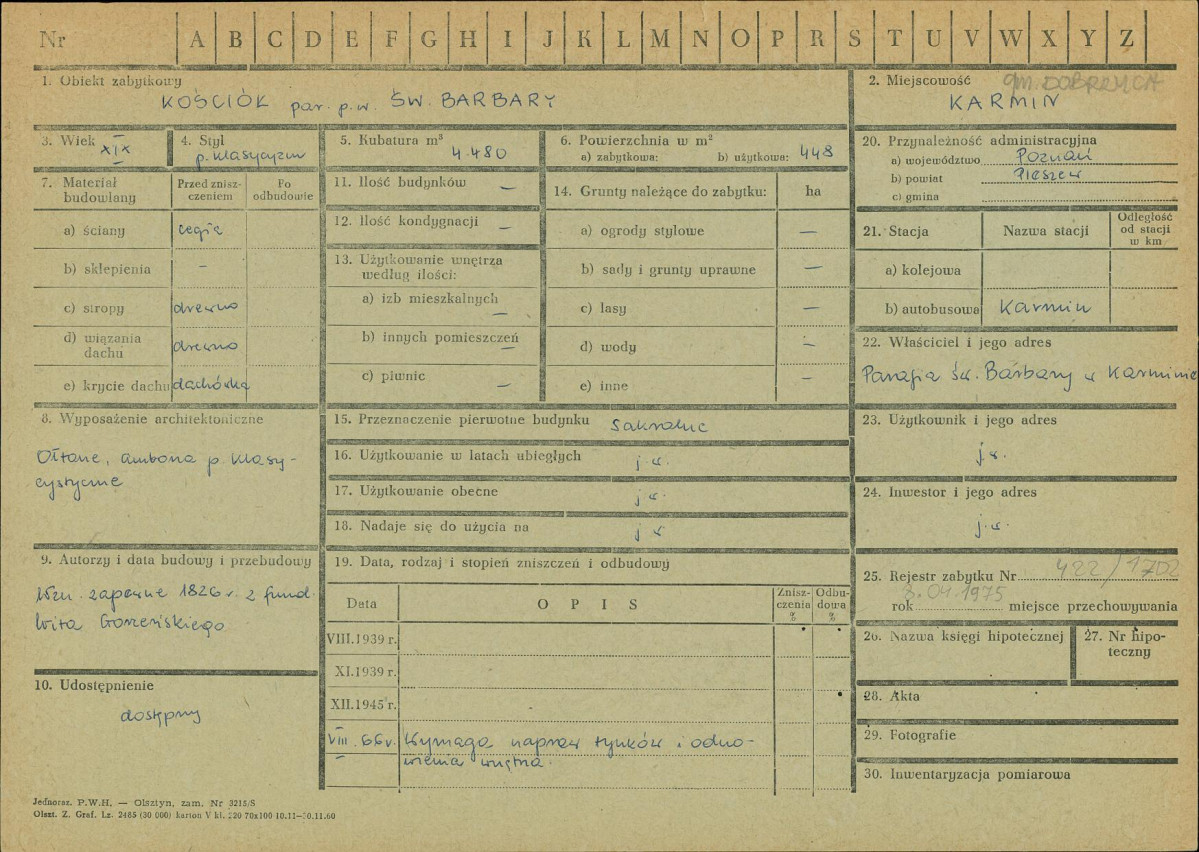 Nr A B C D E F G H I J K L M N O P R S T U V W X Y Z
1. Obiekt zabytkowy
KOŚCIÓŁ par. p.w. ŚW. BARBARY
2. Miejscowość gm. DOBRZYCA
KARMIN
3. Wiek XIX
4. Styl
p. klasycyzm
5. Kubatura m³
4.480
6. Powierzchnia w m²
a) zabytkowa: b) użytkowa: 448
7. Materiał budowlany
Przed zniszczeniem
Po odbudowie
a) ściany cegła
b) sklepienia –
c) stropy drewno
d) wiązania dachu drewno
e) krycie dachu dachówka
8. Wyposażenie architektoniczne
Ołtarze, ambona p. klasy-
cystyczne
9. Autorzy i data budowy i przebudowy
Wzn. zapewne 1826 r. z fund.
Wita Gorzeńskiego
10. Udostępnienie
dostępny
11. Ilość budynków –
12. Ilość kondygnacji –
13. Użytkowanie wnętrza
według ilości:
a) izb mieszkalnych –
b) innych pomieszczeń –
c) piwnic –
14. Grunty należące do zabytku: ha
a) ogrody stylowe –
b) sady i grunty uprawne –
c) lasy –
d) wody –
e) inne –
15. Przeznaczenie pierwotne budynku sakralne
16. Użytkowanie w latach ubiegłych j.w.
17. Użytkowanie obecne j.w.
18. Nadaje się do użycia na j.w.
19. Data, rodzaj i stopień zniszczeń i odbudowy
Data OPIS Zniszczenia % Odbudowa %
VIII.1939 r.
XI.1939 r.
XII.1945 r.
VIII.66 r. Wymaga napraw tynków i odno-
wienia wnętrza.
20. Przynależność administracyjna
a) województwo Poznań
b) powiat Pleszew
c) gmina
21. Stacja Nazwa stacji Odległość od stacji w km
a) kolejowa
b) autobusowa Karmin
22. Właściciel i jego adres
Parafia św. Barbary w Karminie
23. Użytkownik i jego adres
j.w.
24. Inwestor i jego adres
j.w.
25. Rejestr zabytku Nr 422/1702
rok 8.04.1975 miejsce przechowywania
26. Nazwa księgi hipotecznej
27. Nr hipo-
teczny
28. Akta
29. Fotografie
30. Inwentaryzacja pomiarowa
Jednoraz. P.W.H. — Olsztyn, zam. Nr 3215/S
Olszt. Z. Graf. Lz. 2485 (30 000) karton V kl. 220 70x100 10.11—30.11.60